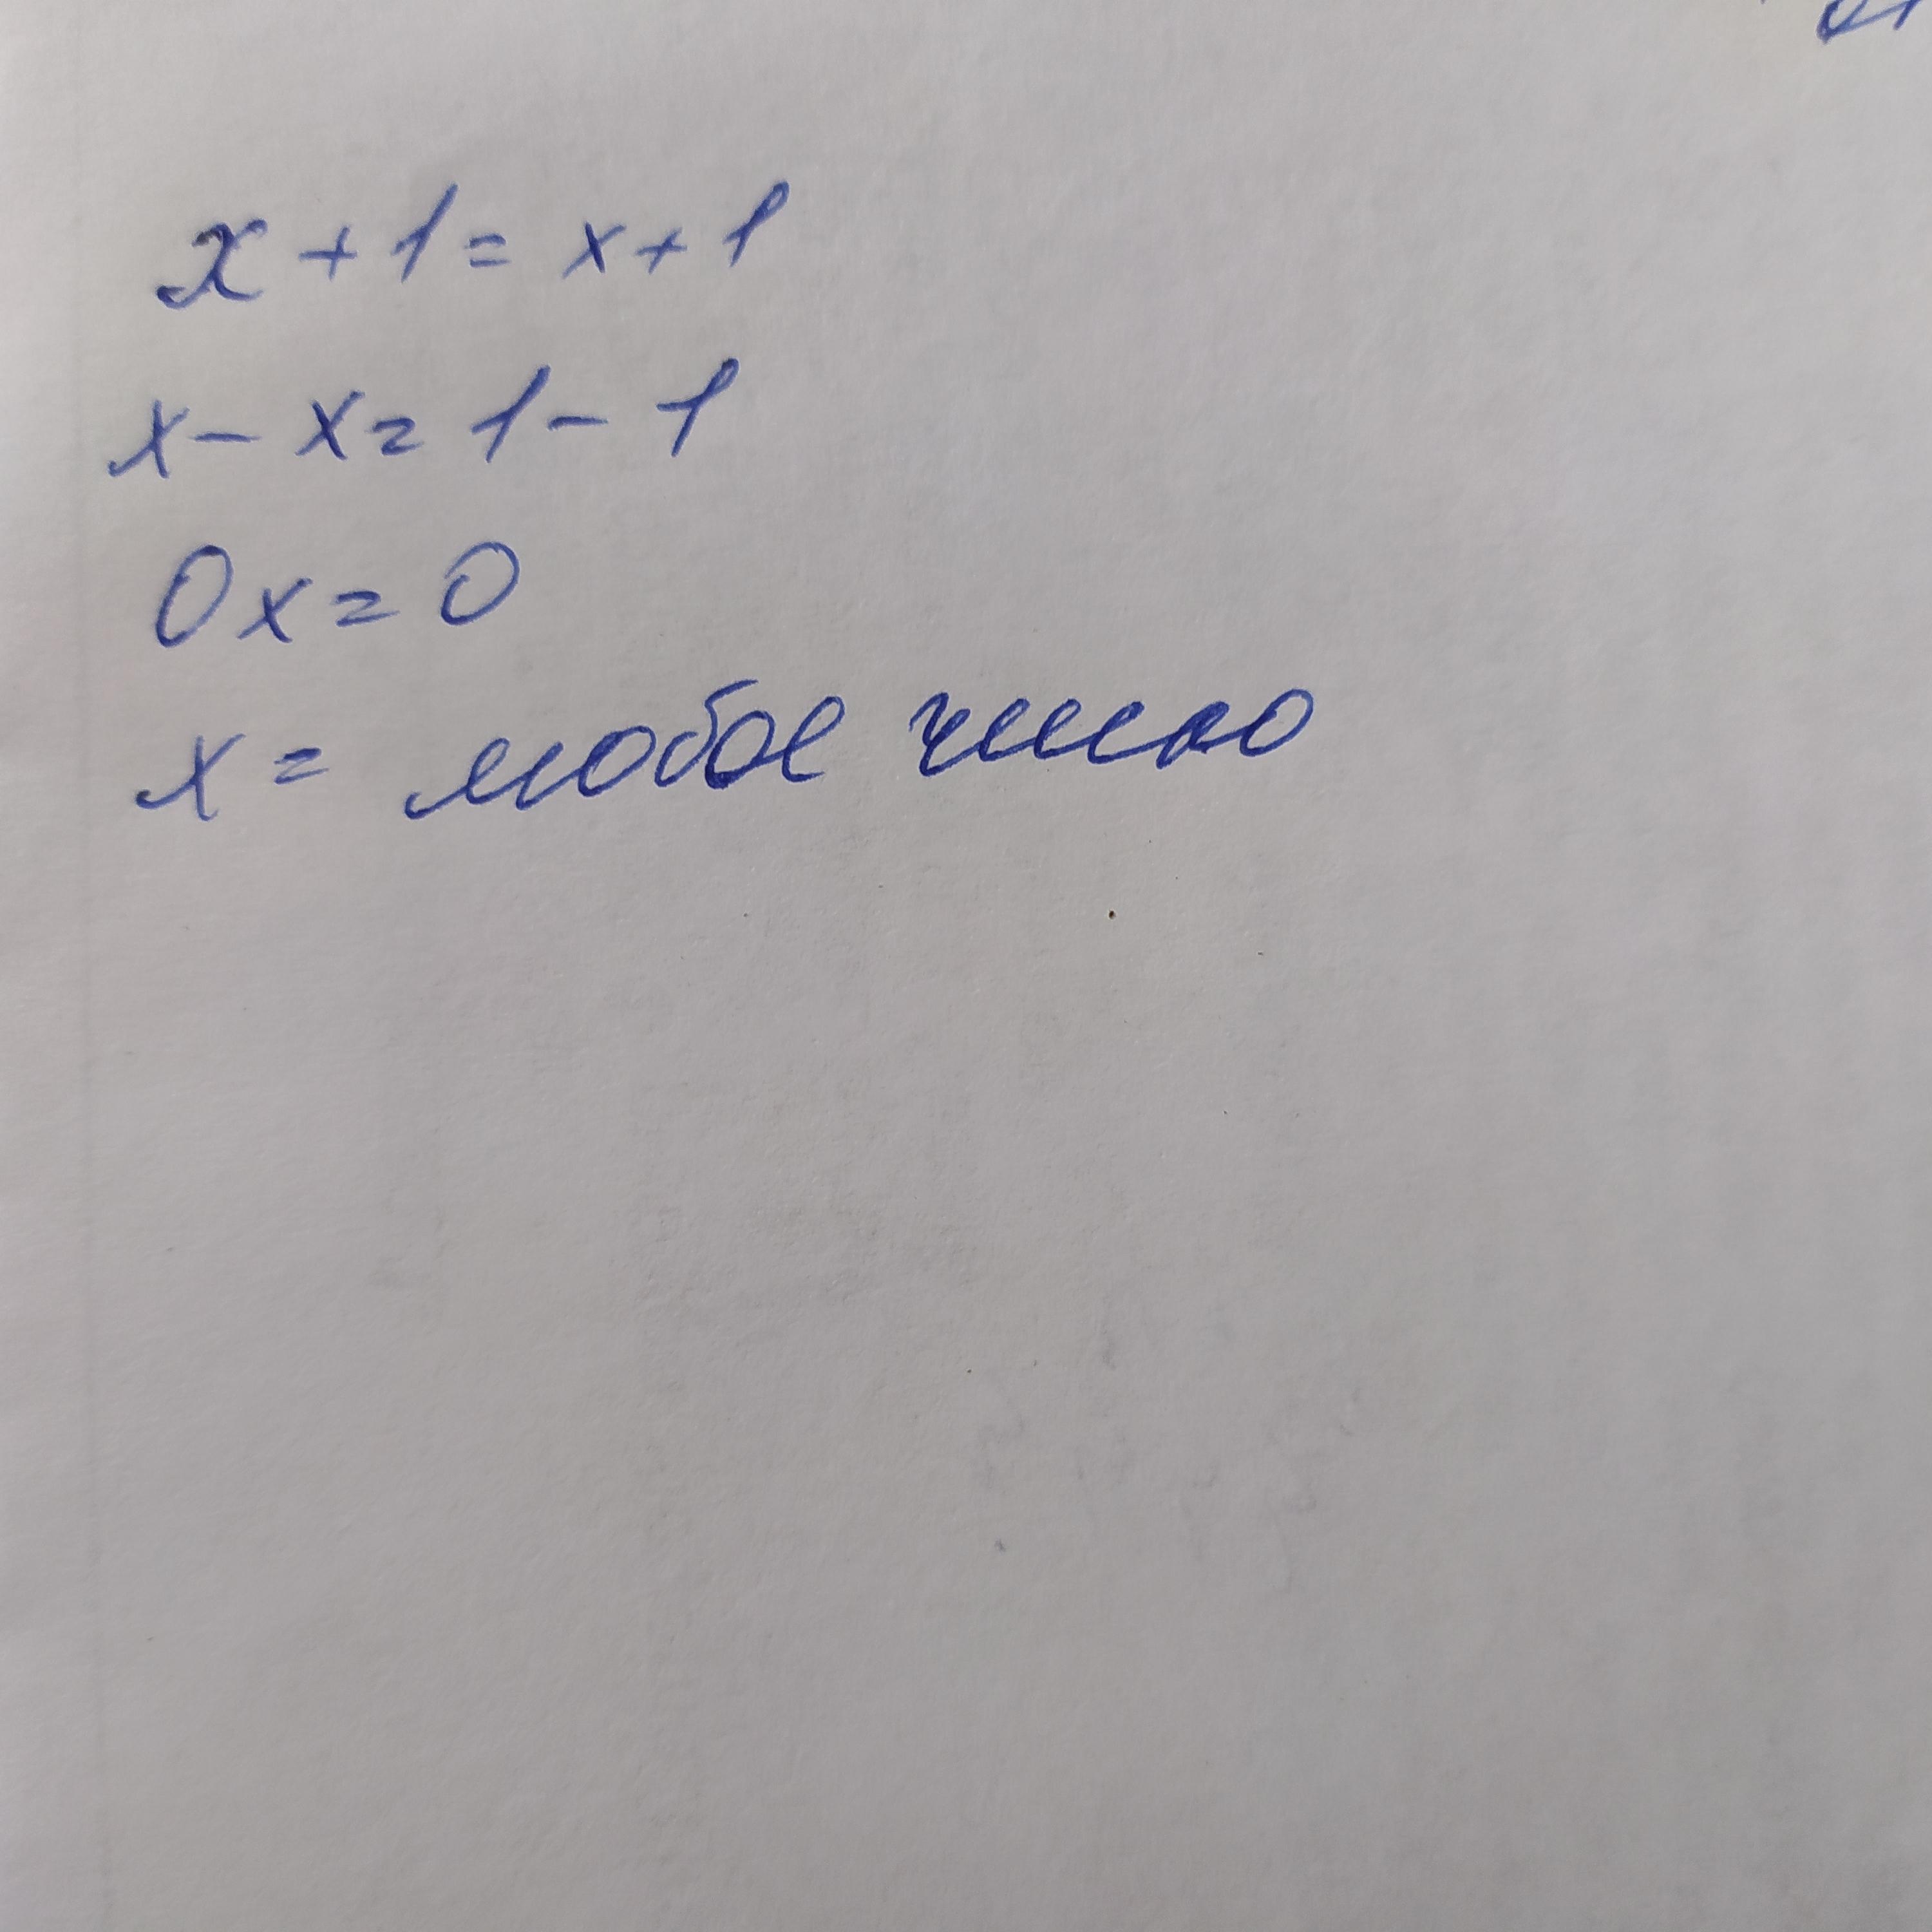 x + 1 = x + 1
x - x = 1 - 1
0x = 0
x = любое число